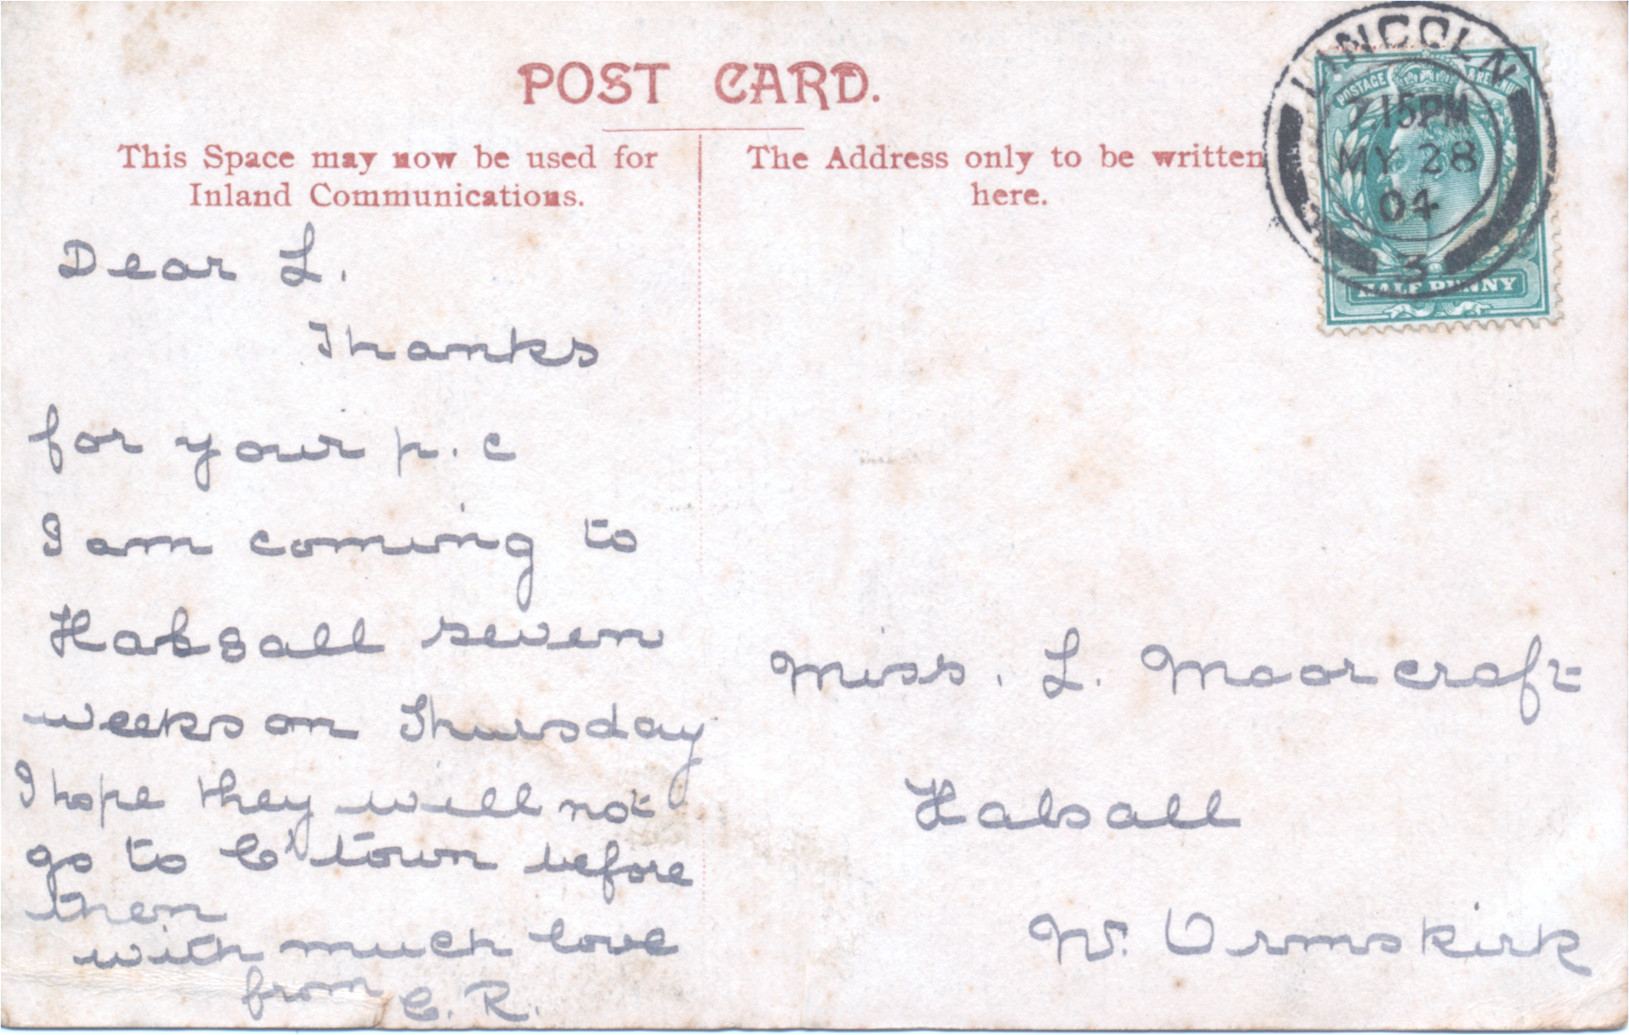 POST CARD.
This Space may now be used for
Inland Communications.
The Address only to be written
here.
LINCOLN
7.15PM
MY 28
04
3
POSTAGE & REVENUE
HALF PENNY
Dear L.
Thanks
for your p.c
I am coming to
Halsall seven
weeks on Thursday
I hope they will not
go to C'town before
then
with much love
from C. R.
Miss. L. Moorcroft
Halsall
Nr. Ormskirk